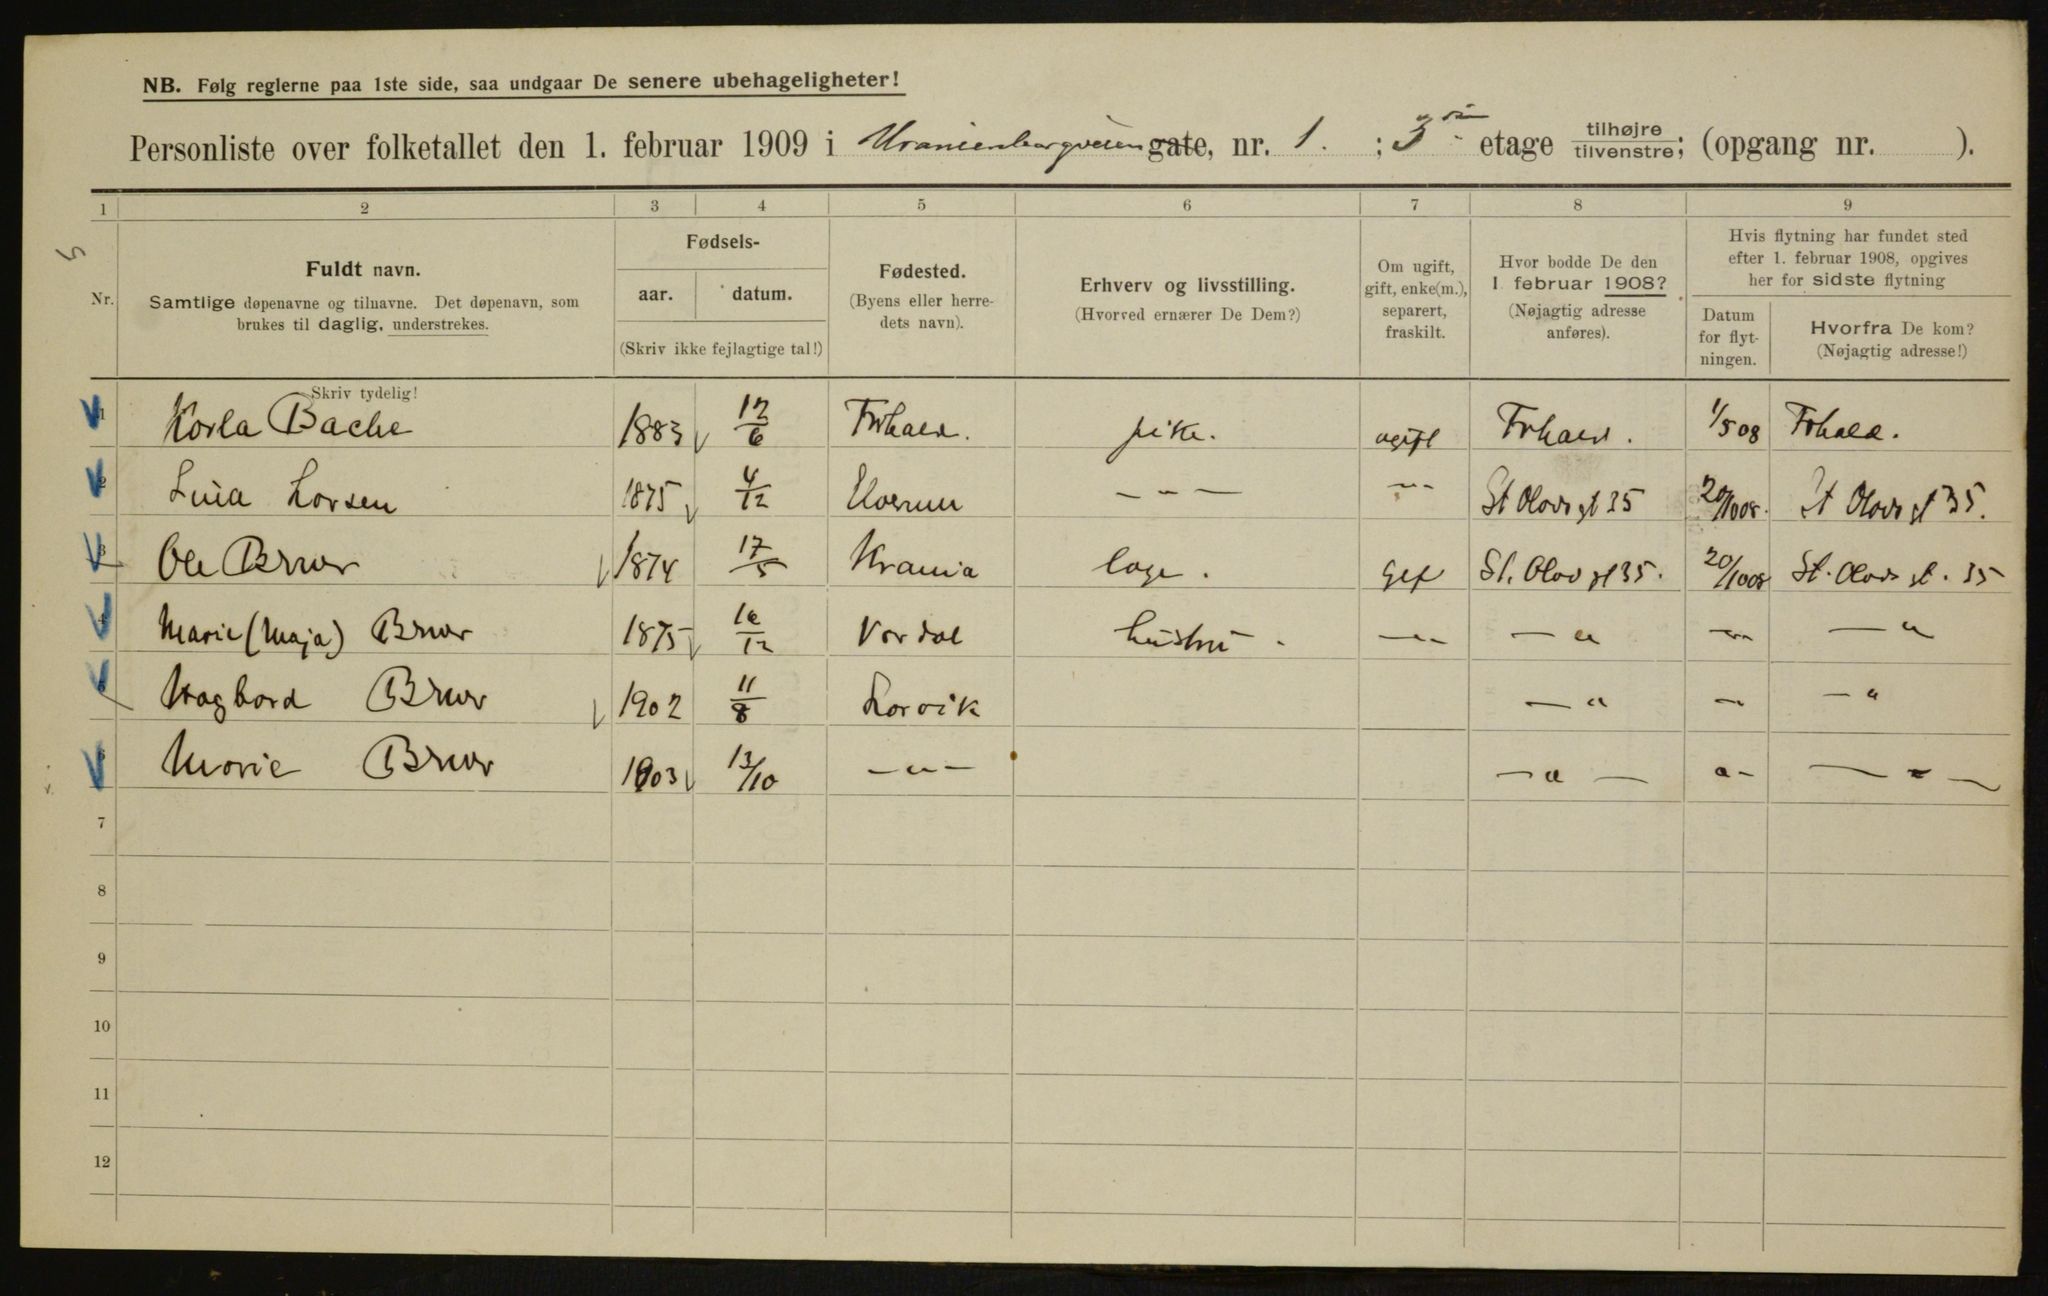 NB. Følg reglerne paa 1ste side, saa undgaar De senere ubehageligheter!
Personliste over folketallet den 1. februar 1909 i Uranienborgveien gate, nr. 1. ; 3 etage tilhøjre tilvenstre; (opgang nr. ).
1 2 3 4 5 6 7 8 9
Nr.
Fuldt navn.
Samtlige døpenavne og tilnavne. Det døpenavn, som
brukes til daglig, understrekes.
Skriv tydelig!
Fødsels-
aar. datum.
(Skriv ikke fejlagtige tal!)
Fødested.
(Byens eller herre-
dets navn).
Erhverv og livsstilling.
(Hvorved ernærer De Dem?)
Om ugift,
gift, enke(m.),
separert,
fraskilt.
Hvor bodde De den
1 februar 1908?
(Nøjagtig adresse
anføres).
Hvis flytning har fundet sted
efter 1. februar 1908, opgives
her for sidste flytning
Datum
for flyt-
ningen.
Hvorfra De kom?
(Nøjagtig adresse!)
1 Karla Bache 1883 12/6 Frhald. pike. ugift Frhald. 1/5 08 Frhald.
2 Lina Larsen 1875 4/12 Elverum — " — — " — St Olavs gt 35 20/10 08. St Olavs gt 35.
3 Ole Bruer 1874 17/5 Krania læge. gift St. Olavs gt 35. 20/10 08 St. Olavs gt. 35
4 Marie (Maja) Bruer 1875 16/12 Vardal hustru — " — — " — " — — "
5 Hagbard Bruer 1902 11/8 Larvik — " — " — "
6 Marie Bruer 1903 13/10 — " — — " — " — — " —
7
8
9
10
11
12